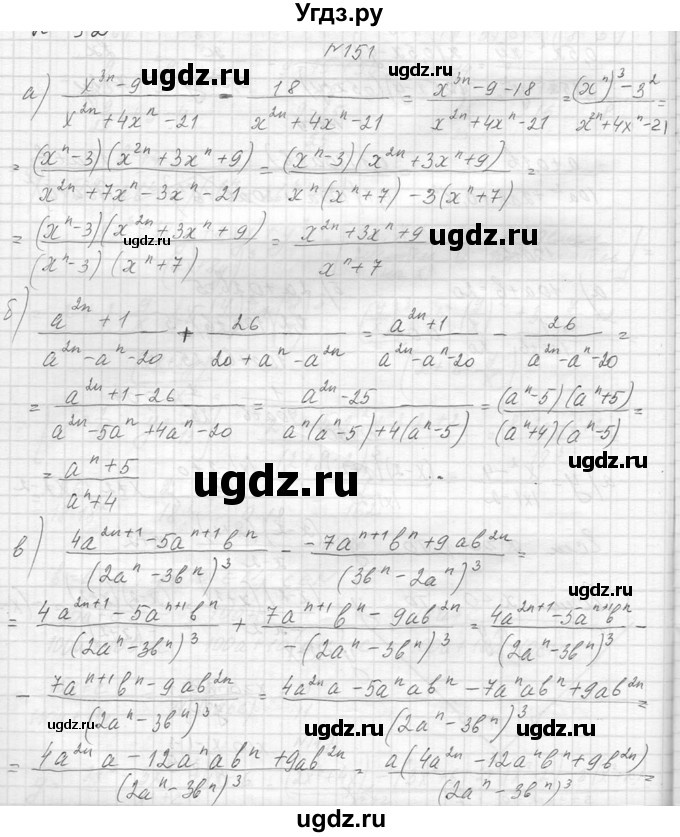 Угдз.ру
№151
а) (x^{3n} - 9)/(x^{2n} + 4x^n - 21) - 18/(x^{2n} + 4x^n - 21) = (x^{3n} - 9 - 18)/(x^{2n} + 4x^n - 21) = ((x^n)^3 - 3^2)/(x^{2n} + 4x^n - 21) =
= ((x^n - 3)(x^{2n} + 3x^n + 9))/(x^{2n} + 7x^n - 3x^n - 21) = ((x^n - 3)(x^{2n} + 3x^n + 9))/(x^n(x^n + 7) - 3(x^n + 7)) =
= ((x^n - 3)(x^{2n} + 3x^n + 9))/((x^n - 3)(x^n + 7)) = (x^{2n} + 3x^n + 9)/(x^n + 7)
б) (a^{2n} + 1)/(a^{2n} - a^n - 20) + 26/(20 + a^n - a^{2n}) = (a^{2n} + 1)/(a^{2n} - a^n - 20) - 26/(a^{2n} - a^n - 20) =
= (a^{2n} + 1 - 26)/(a^{2n} - 5a^n + 4a^n - 20) = (a^{2n} - 25)/(a^n(a^n - 5) + 4(a^n - 5)) = ((a^n - 5)(a^n + 5))/((a^n + 4)(a^n - 5)) =
= (a^n + 5)/(a^n + 4)
в) (4a^{2n+1} - 5a^{n+1}b^n)/(2a^n - 3b^n)^3 - (-7a^{n+1}b^n + 9ab^{2n})/(3b^n - 2a^n)^3 =
= (4a^{2n+1} - 5a^{n+1}b^n)/(2a^n - 3b^n)^3 + (7a^{n+1}b^n - 9ab^{2n})/(-(2a^n - 3b^n)^3) = (4a^{2n+1} - 5a^{n+1}b^n)/(2a^n - 3b^n)^3 -
- (7a^{n+1}b^n - 9ab^{2n})/(2a^n - 3b^n)^3 = (4a^{2n}a - 5a^n ab^n - 7a^n ab^n + 9ab^{2n})/(2a^n - 3b^n)^3 =
= (4a^{2n}a - 12a^n ab^n + 9ab^{2n})/(2a^n - 3b^n)^3 = a(4a^{2n} - 12a^n b^n + 9b^{2n})/(2a^n - 3b^n)^3 =
ugdz.ru
ugdz.ru
ugdz.ru
ugdz.ru
ugdz.ru
ugdz.ru
ugdz.ru
ugdz.ru
ugdz.ru
ugdz.ru
ugdz.ru
ugdz.ru
ugdz.ru